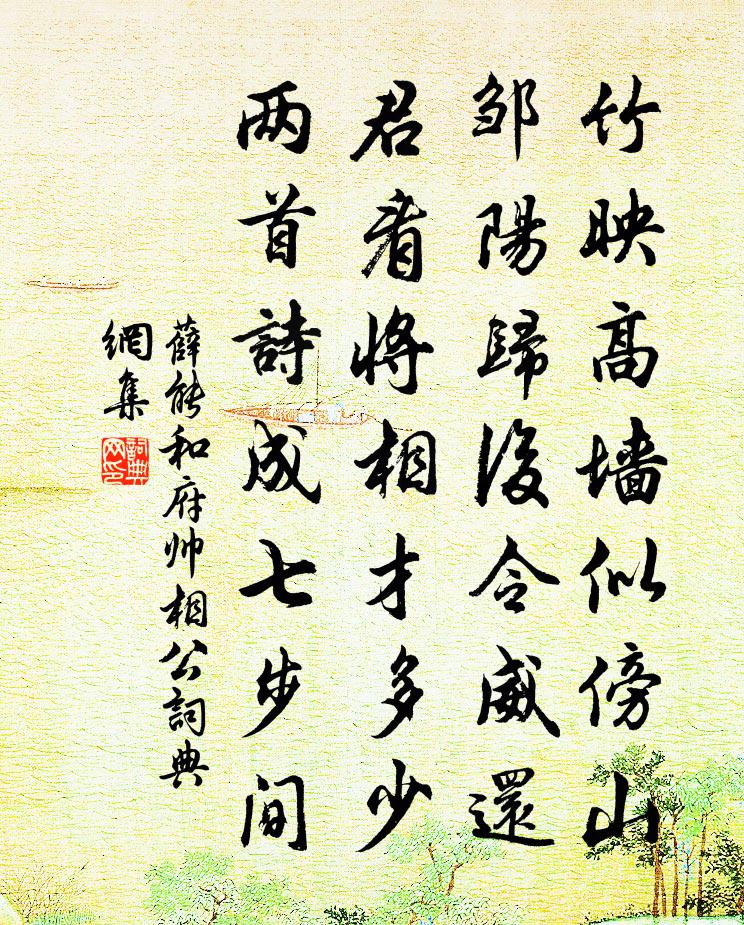 竹映高墙似傍山
邹陽歸後令威還
君看将相才多少
两首詩成七步间
薛能和府帅相公詞典
網集
詞典
网印